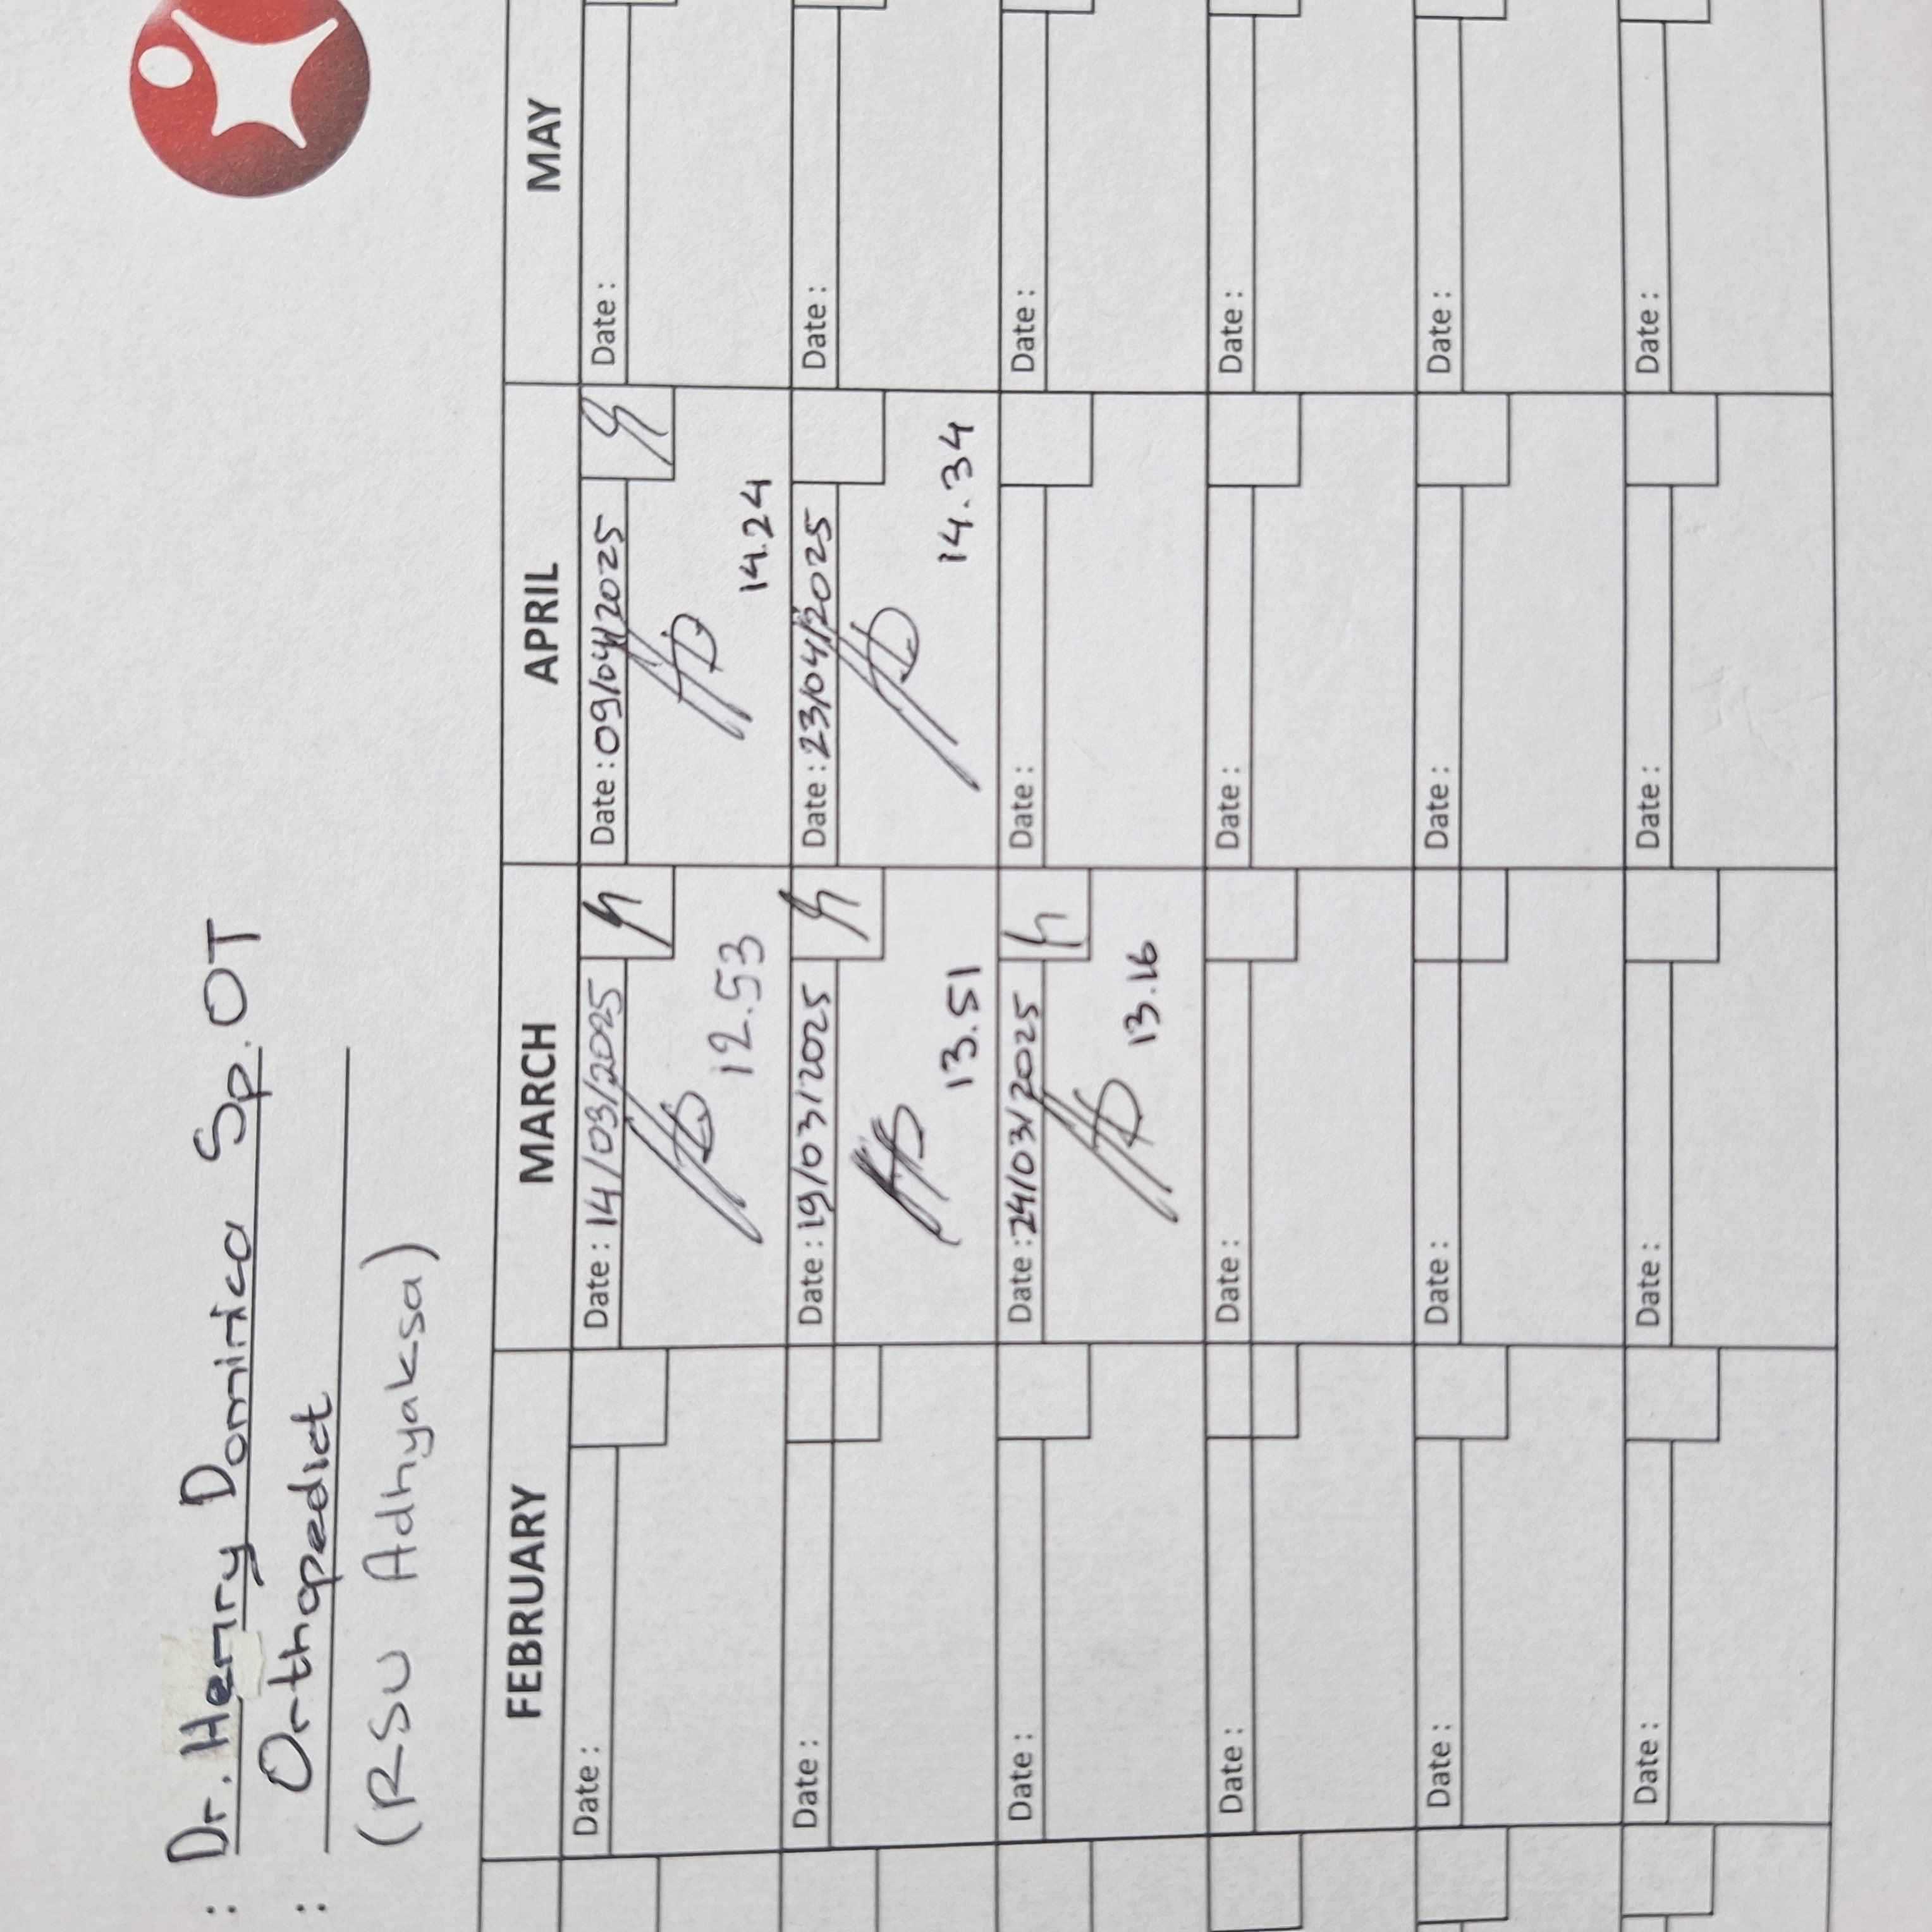 : Dr. Henry Dominica Sp.OT
: Orthopedict
(RSU Adhyaksa)
FEBRUARY MARCH APRIL MAY
Date : Date : 14/03/2025 Date : 09/04/2025 Date :
12.53 14.24
Date : Date : 19/03/2025 Date : 23/04/2025 Date :
13.51 14.34
Date : Date : 24/03/2025 Date : Date :
13.16
Date : Date : Date : Date :
Date : Date : Date : Date :
Date : Date : Date : Date :